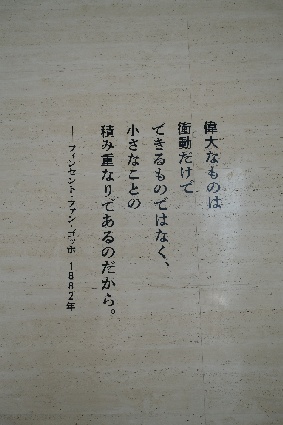 偉大なものは
衝動だけで
できるものではなく、
小さなことの
積み重なりであるのだから。
— フィンセント・ファン・ゴッホ 1882年